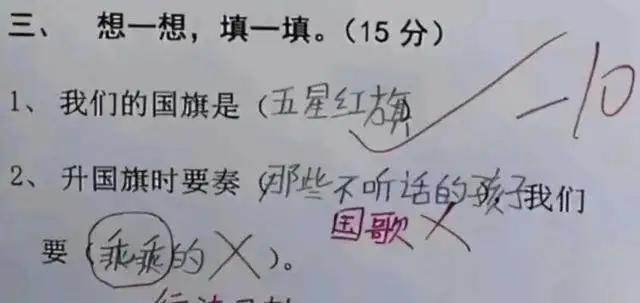 三、 想一想，填一填。（15分）
-10
1、 我们的国旗是（五星红旗
2、 升国旗时要奏（那些不听话的孩子我们
国歌
要（乖乖的）。